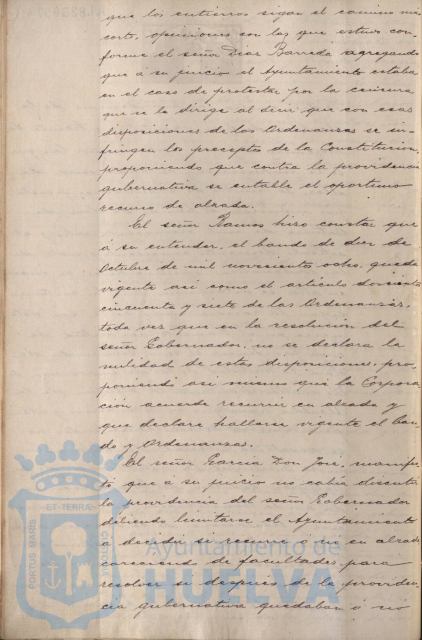 que los entierros sigan el camino más
corto, opiniones con las que estuvo con-
forme el señor Diaz Barreda agregando
que á su juicio el Ayuntamiento estaba
en el caso de protestar por la censura
que se le dirige al decir que con esas
disposiciones de las Ordenanzas se in-
fringen los preceptos de la Constitucion,
proponiendo que contra la providencia
gubernativa se entable el oportuno
recurso de alzada.
El señor Ramos hizo constar que
á su entender, el bando de diez de
Octubre de mil novecientos ocho, queda
vigente asi como el artículo doscientos
cincuenta y siete de las Ordenanzas,
toda vez que en la resolución del
señor Gobernador, no se declara la
nulidad de estas disposiciones, pro-
poniendo asi mismo que la Corpora-
ción acuerde recurrir en alzada y
que declare hallarse vigente el Ban-
do y Ordenanzas.
El señor Garcia Don José, manifes-
tó que á su juicio no cabia discutir
la providencia del señor Gobernador
debiendo limitarse el Ayuntamiento
á decidir si recurre ó no en alzada
careciendo de facultades para
resolver si despues de la providen-
cia gubernativa quedaban ó nó
PORTUS MARIS ET TERRÆ CUSTODIA
Ayuntamiento de
HUELVA